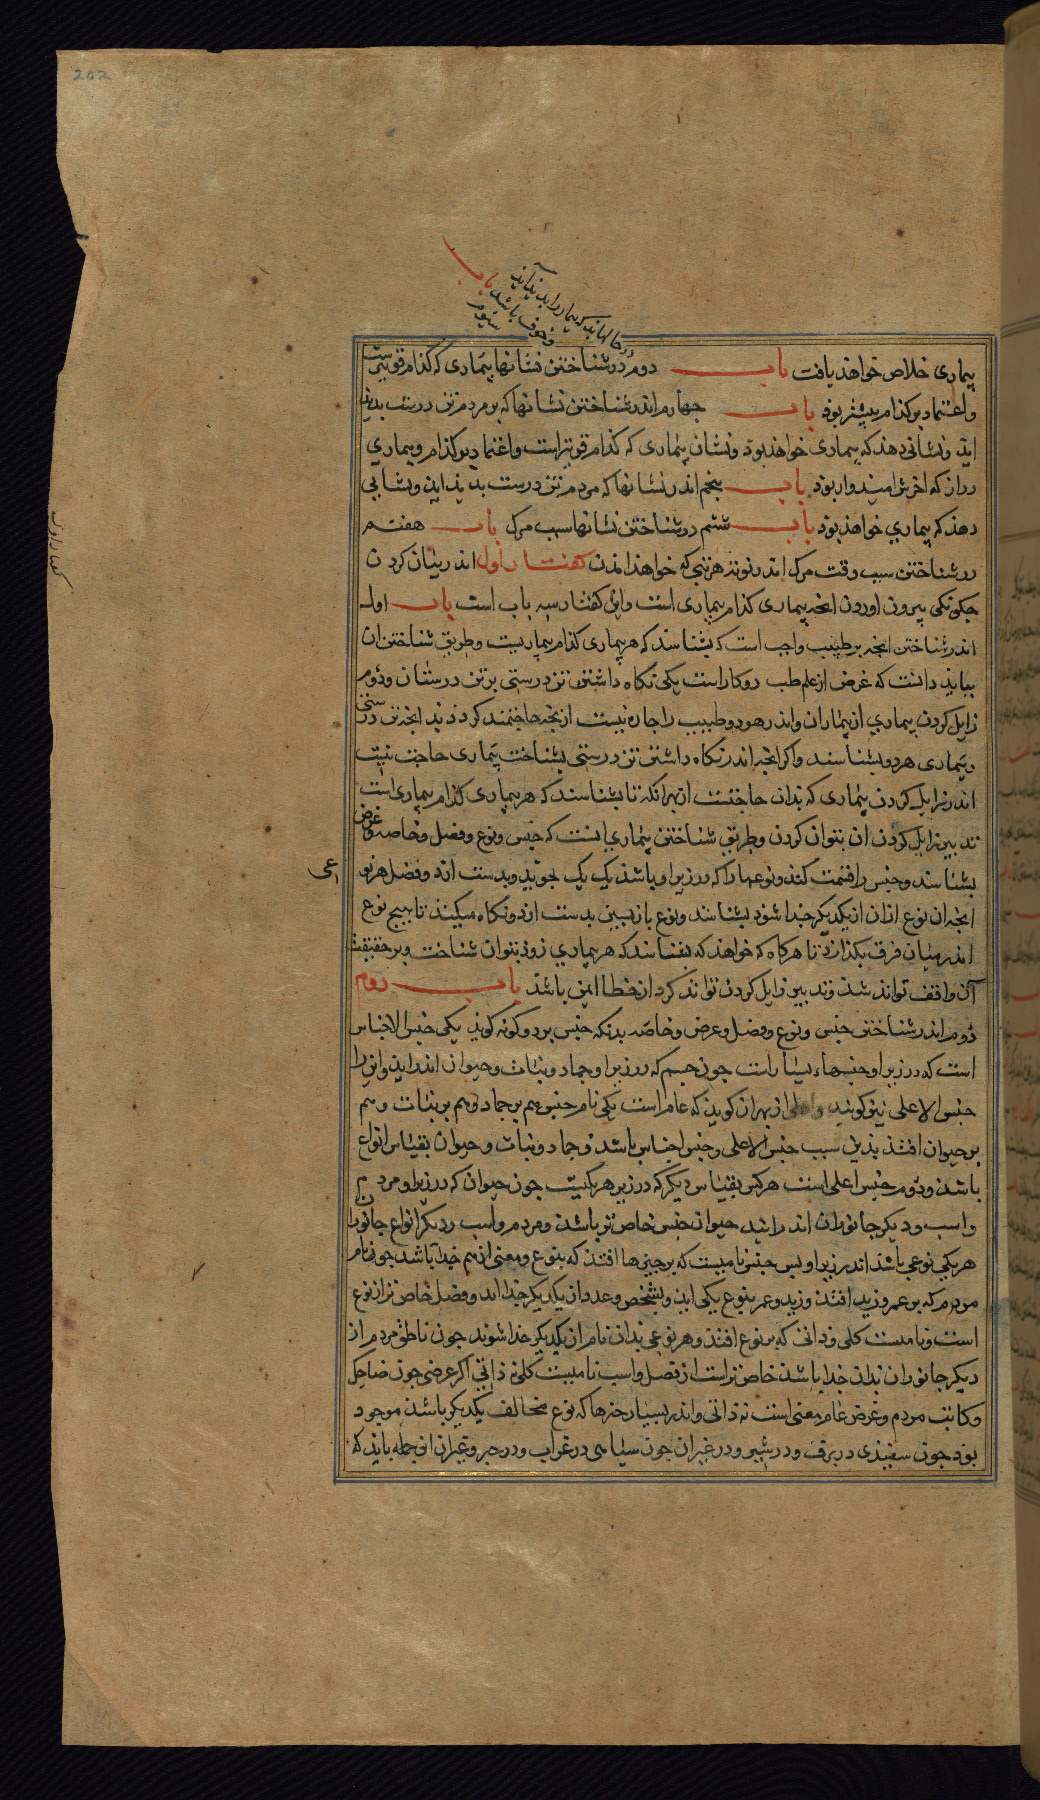 202
در حالهایی که بیمار را بدید آید
و خوف باشد باب
سیوم
بیماری خلاص خواهد یافت باب دوم در شناختن نشانها بیماری که کدام قویست
واعتماد بر کدام بیشتر بود باب جهارم اندر شناختن نشانها که بر مردم تن درست بدید
اید ونشانی دهد که بیماری خواهد بود ونشان بیماری که کدام قویتر است واعتماد بر کدام وبیماری
دراز که اخرش امیدوار بود باب پنجم اندر نشانها که مردم تن درست بدید اید ونشانی
دهد که بیماری خواهد بود باب ششم در شناختن نشانها سبب مرک باب هفتم
در شناختن سبب وقت مرک اندر نوبة هر تبی که خواهد امدن کفتار اول اندر بیان کردن
جکونکی بیرون اوردن انجه بیماری کدام بیماری است واین کفتار سه باب است باب اول
اندر شناختن انجه بر طبیب واجب است که بشناسد که هر بیماری کدام بیماریست وطریق شناختن ان
بباید دانست که غرض از علم طب دو کار است یکی نکاه داشتن تن درستی بر تن درستان ودوم
زایل کردن بیماری از بیماران واندر هر دو طبیب را جاره نیست از انجه حاجتمند کردد بدانجه تن درستی
وبیماری هر دو بشناسد واکر انجه اندر نکاه داشتن تن درستی بشناخت بیماری حاجت نیست
اندر زایل کردن بیماری که بدان حاجتست از بهر انکه تا بشناسد که هر بیماری کدام بیماری است
تدبیر زایل کردن ان نتوان کردن وطریق شناختن بیماری انست که جنس ونوع وفصل وخاصه وعرض
بشناسد وجنس را قسمت کند ونوعها را که در زیر او باشد یک یک بجوید وبدست ارد وفصل هر نو
اعی
انجه ان نوع ازان از یکدیکر جدا شود بشناسد ونوع بازبسین بدست ارد ونکاه میکند تا هیج نوع
اندر میان فرق نکذارد تا هر کاه که خواهد که بشناسد که هر بیماری زود بتوان شناخت وبر حقیقت
آن واقف تواند شد وتدبیر زایل کردن تواند کرد از خطا ایمن باشد باب دوم
دوم اندر شناختن جنس ونوع وفصل وعرض وخاصه بدانکه جنس بر دو کونه کویند یکی جنس الاجناس
است که در زیر او جنسهاء بسیار است جون جسم که در زیر او جماد ونبات وحیوان اندر اید واین را
جنس الاعلی نیز کویند واعلی از بهر ان کویند که عام است یکی نام جنس هم بر جماد وهم بر نبات وهم
بر حیوان افتد بدین سبب جنس الاعلی وجنس اجناس باشد وجماد ونبات وحیوان بقیاس انواع
باشد ودوم جنس اعلی است هر کس بقیاس دیکر که در زیر هر یکیست جون حیوان که در زیر او مردم
واسب ودیکر جانوران اندر ایند حیوان جنس خاص تر باشد ومردم واسب ودیکر انواع جانورا
ن
هر یکی نوعی باشد اندر زیر او بس جنس نامیست که بر جیزها افتد که بنوع ومعنی از هم جدا باشد جون نام
مردم که بر عمر وزید افتد وزید وعمر بنوع یکی اند وبشخص وعدد از یکدیکر جدا اند وفصل خاص تر از نوع
است ونامیست کلی وذاتی که بر نوع افتد وهر نوعی بدان نام از یکدیکر جدا شوند جون ناطق مردم از
دیکر جانوران بدان جدا باشد خاص تر است از فصل واسب نامیست کلی نه ذاتی اکر عرضی جون ضاحک
وکاتب مردم وعرض عام معنی است نه ذاتی واندر بسیار جیزها که نوع مخالف یکدیکر باشد موجود
بود جون سفیدی در برف ودر شیر ودر غیر ان جون سیاهی در غراب ودر حبر وغیر ان از جمله باید که